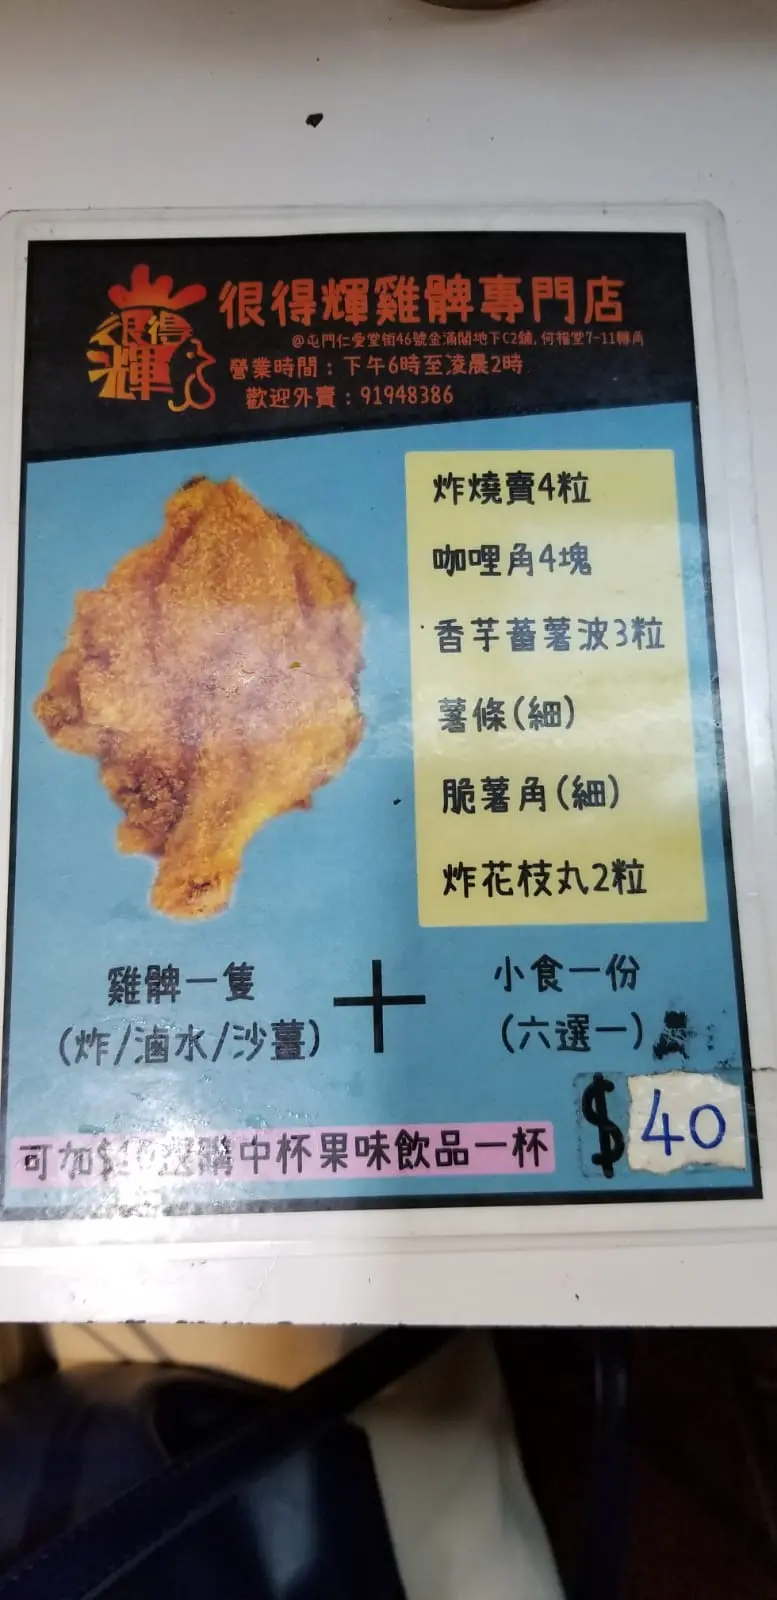 很得輝
很得輝雞髀專門店
@屯門仁愛堂街46號金滿閣地下C2舖, 何福堂7-11轉角
營業時間：下午6時至凌晨2時
歡迎外賣：91948386
炸燒賣4粒
咖哩角4塊
香芋蕃薯波3粒
薯條(細)
脆薯角(細)
炸花枝丸2粒
雞髀一隻
(炸/滷水/沙薑)
+
小食一份
(六選一)
$40
可加$10選購中杯果味飲品一杯